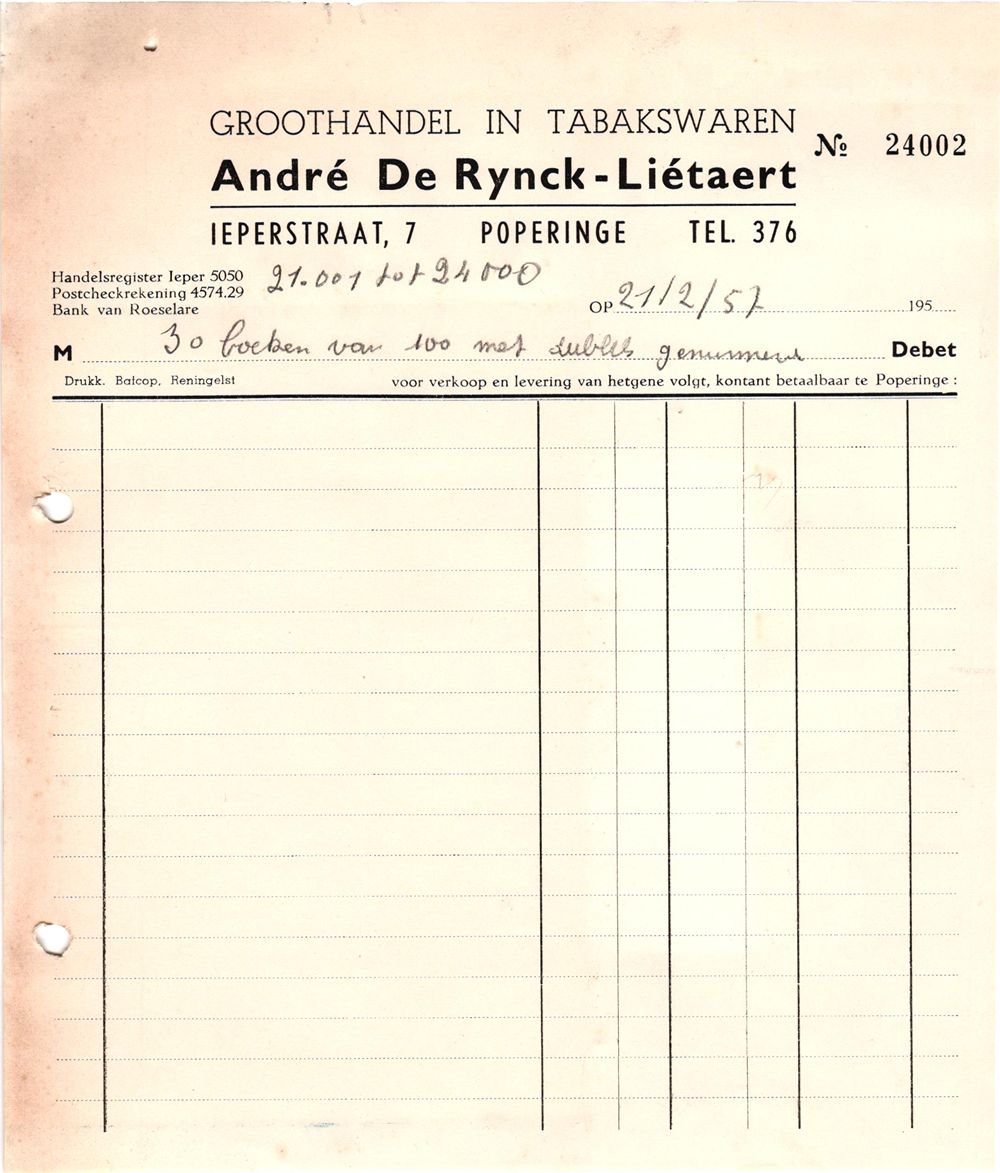 GROOTHANDEL IN TABAKSWAREN
№ 24002
André De Rynck-Liétaert
IEPERSTRAAT, 7 POPERINGE TEL. 376
Handelsregister Ieper 5050
Postcheckrekening 4574.29
Bank van Roeselare
21.001 tot 24000
OP 21/2/57 195
M 30 boeken van 100 met dubbels genummerd Debet
Drukk. Batcop, Reningelst voor verkoop en levering van hetgene volgt, kontant betaalbaar te Poperinge :